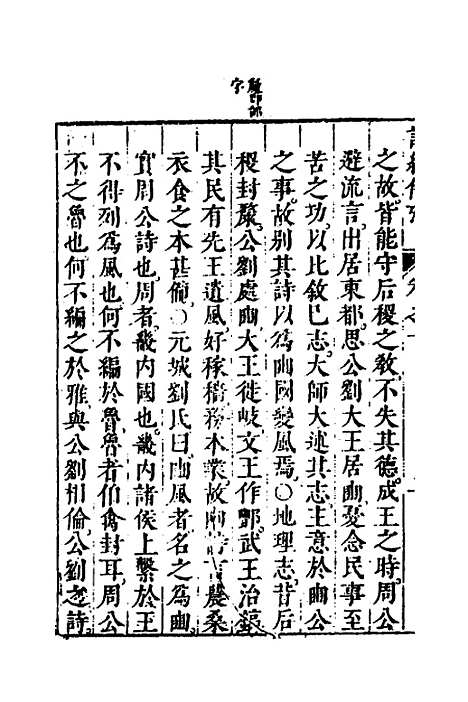 釐即邰
字
之故皆能守后稷之敎不失其德成王之時周公
避流言出居東都思公劉大王居豳憂念民事至
苦之功以比敘巳志大師大述其志主意於豳公
之事故别其詩以爲豳國變風焉○地理志昔后
稷封釐公劉處豳大王徙岐文王作酆武王治鎬
其民有先王遺風好稼穡務本業故豳詩言農桑
衣食之本甚備○元城劉氏曰豳風者名之爲豳
實周公詩也周者畿內國也畿內諸侯上繫於王
不得列爲風也何不編於魯魯者伯禽封耳周公
不之魯也何不編之於雅與公劉相倫公劉之詩